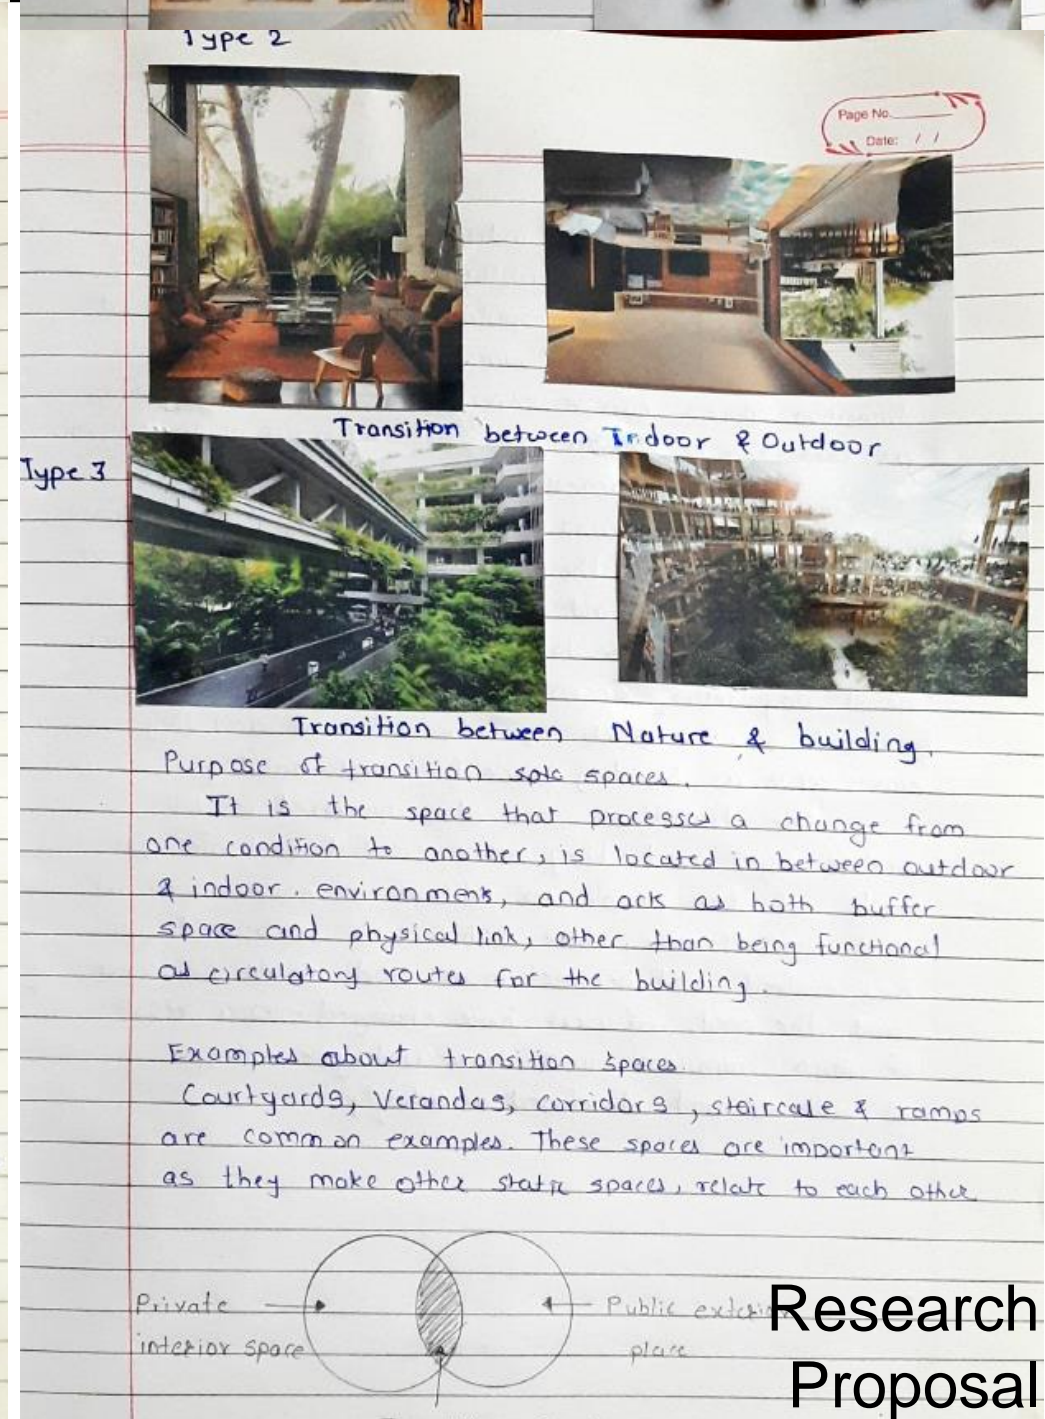 Type 2
Page No.
Date: / /
Transition between Indoor & Outdoor
Type 3
Transition between Nature & building.
Purpose of transition spaces.
It is the space that processes a change from
one condition to another, is located in between outdoor
& indoor. environment, and acts as both buffer
space and physical link, other than being functional
as circulatory routes for the building.
Examples about transition spaces.
Courtyards, Verandas, corridors, staircase & ramps
are common examples. These spaces are important
as they make other static spaces, relate to each other
Private
interior space
Public exterior
place
Research
Proposal